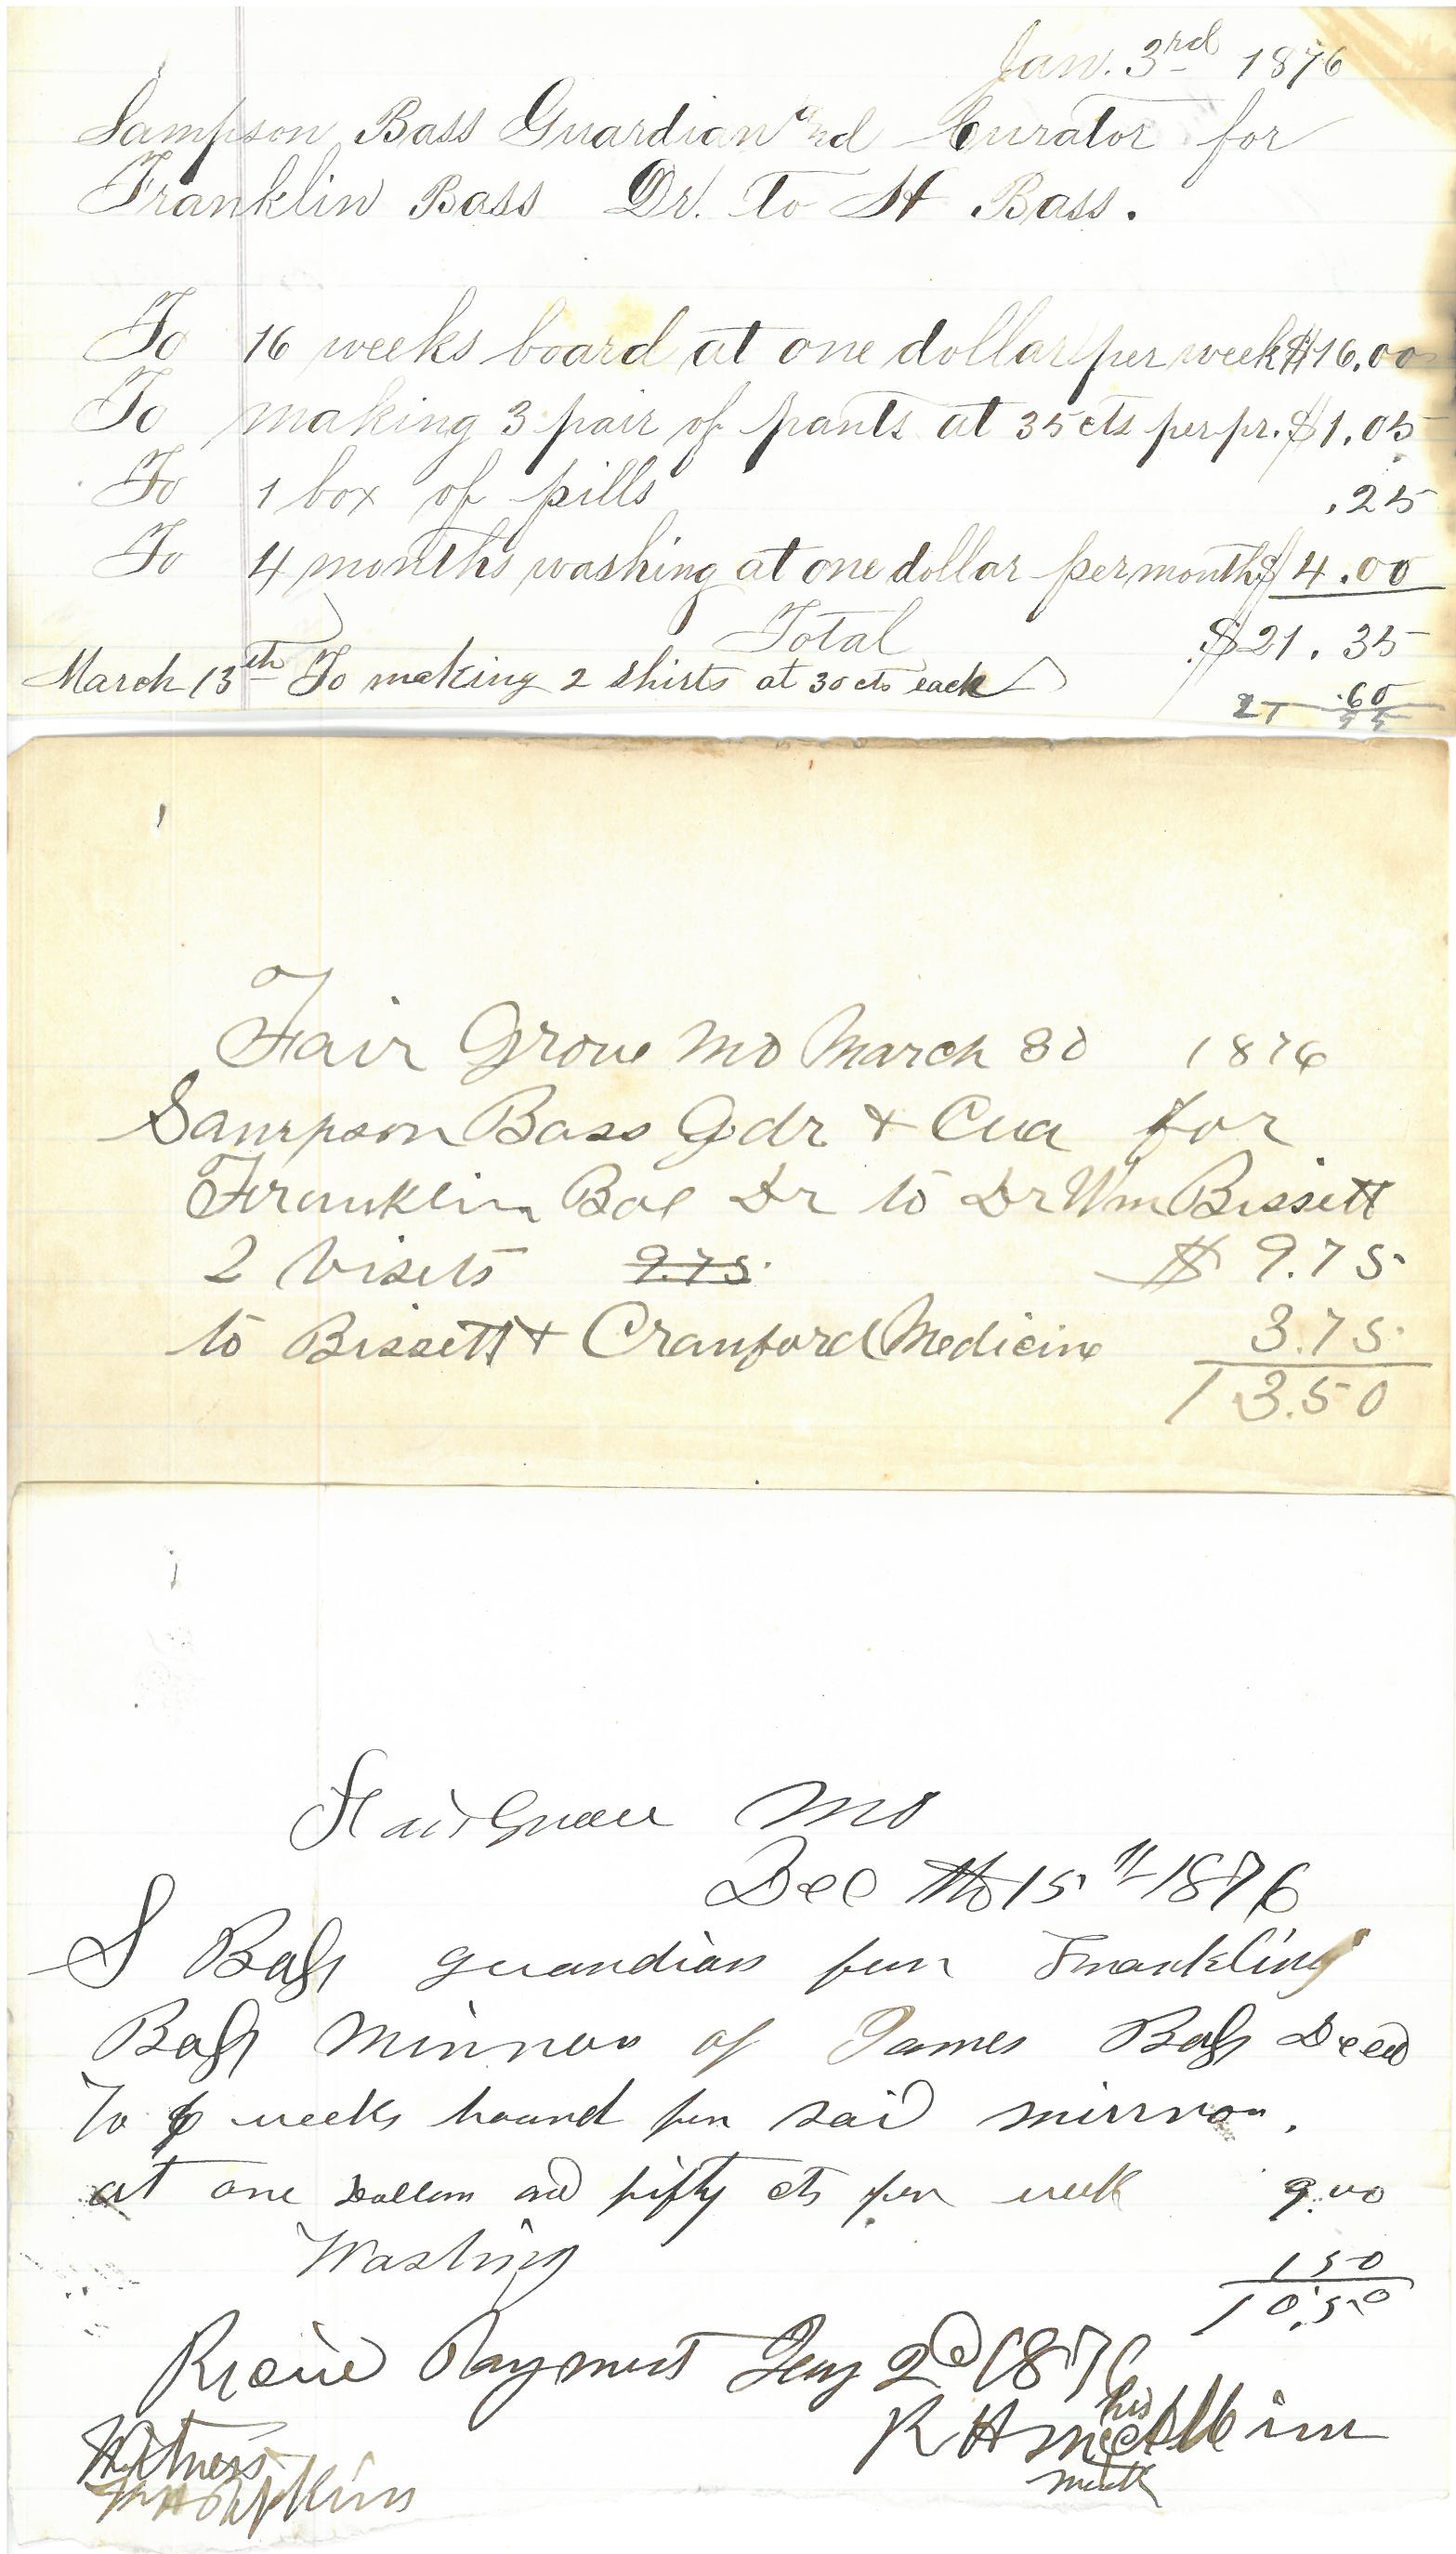 Jan. 3rd 1876
Sampson Bass Guardian and Curator for
Franklin Bass Dr. To H Bass.
To 16 weeks board at one dollar per week $16.00
To making 3 pair of pants at 35 cts per pr. $1.05
To 1 box of pills .25
To 4 months washing at one dollar per month $4.00
Total $21.35
March 13th To making 2 shirts at 30 cts each .60
21 95
Fair Grove Mo March 30 1876
Sampson Bass Gdr & Cua for
Franklin Bas Dr to Dr Wm Bissett
2 Visets 9.75 $ 9.75
to Bissett & Cranford Medicine 3.75
13.50
Fair Grove Mo
Dec the 15th 1876
S Bass guardian fur Frankling
Bass Minnor of James Bass Deced
To 6 weeks bourd fur said minnor.
at one Dollar and fifty cts per week 9.00
Washing 1 50
10.50
Payment 2d 187
R H his
mark
Witness